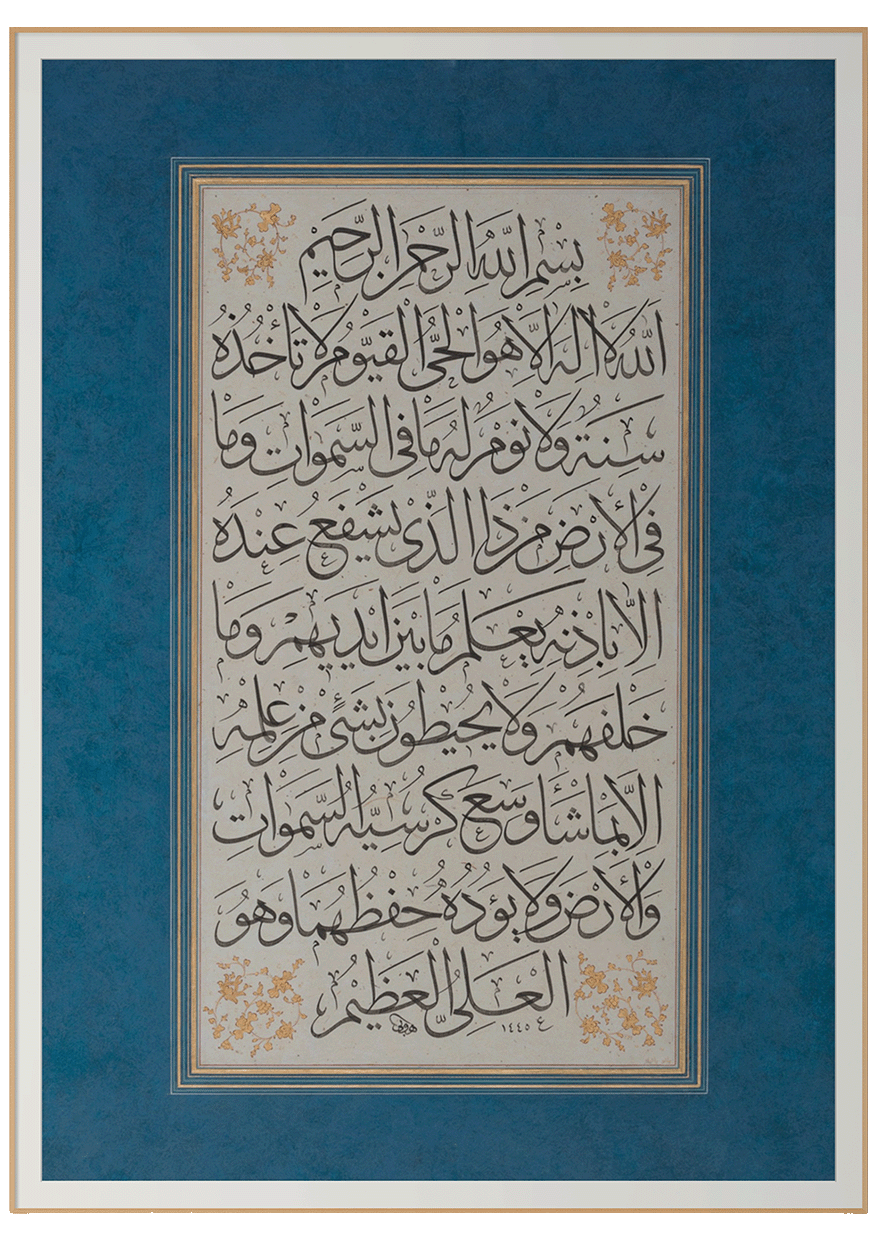 بسم الله الرحمن الرحيم
الله لا اله الا هو الحي القيوم لا تأخذه
سنة ولا نوم له ما في السموات وما
في الأرض من ذا الذي يشفع عنده
الا باذنه يعلم ما بين ايديهم وما
خلفهم ولا يحيطون بشئ من علمه
الا بما شاء وسع كرسيه السموات
والأرض ولا يؤده حفظهما وهو
العلي العظيم
١٤٤٥